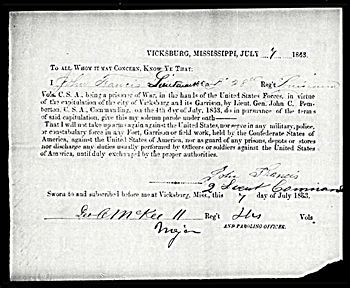 VICKSBURG, MISSISSIPPI, JULY 7 1863.
TO ALL WHOM IT MAY CONCERN, KNOW YE THAT:
I John Francis Lieutenant Reg't Louisiana
Vols. C. S. A., being a prisoner of War, in the hands of the United States Forces, in virtue
of the capitulation of the city of Vicksburg and its Garrison, by Lieut. Gen. John C. Pem-
berton, C. S. A., Commanding, on the 4th day of July, 1863, do in pursuance of the terms
of said capitulation, give this my solemn parole under oath
That I will not take up arms again against the United States, nor serve in any military, police,
or constabulary force in any Fort, Garrison or field work, held by the Confederate States of
America, against the United States of America, nor as guard of any prisons, depots or stores
nor discharge any duties usually performed by Officers or soldiers against the United States
of America, until duly exchanged by the proper authorities.
John Francis
2 Lieut Command
Sworn to and subscribed before me at Vicksburg, Miss., this 7 day of July 1863.
Geo C McKee 11 Reg't Ills Vols
Major AND PAROLING OFFICER.